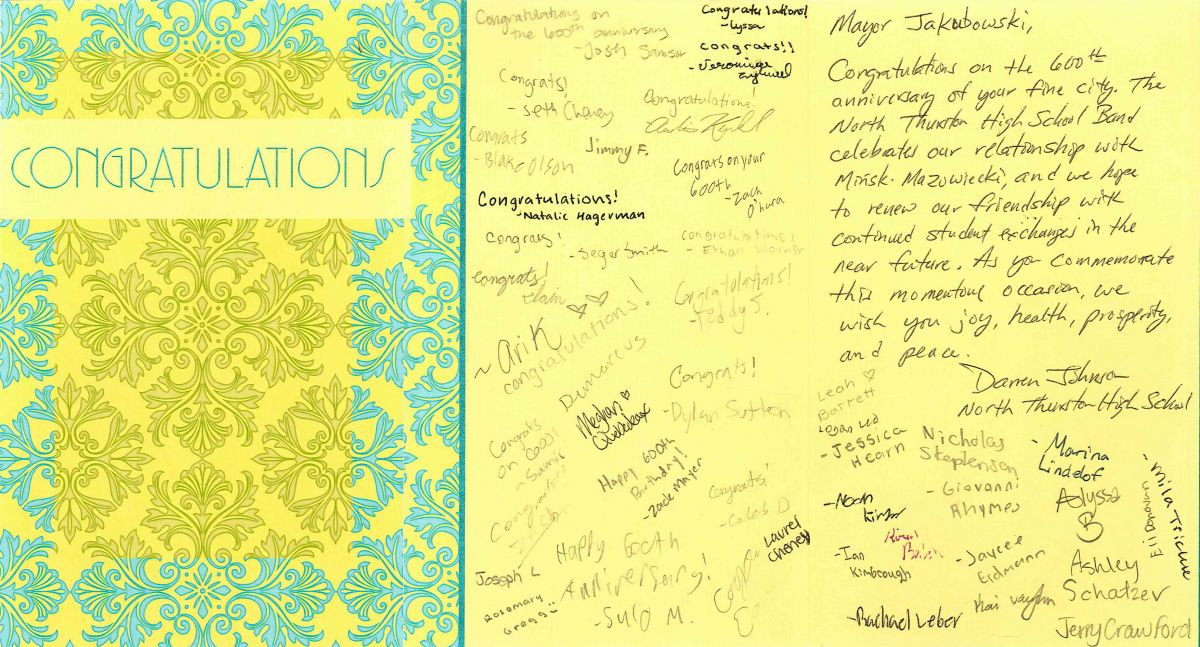 CONGRATULATIONS
Congratulations on
the 600th anniversary
- Josh Samson
Congratulations!
- Lyssa
congrats!!
- Veronique
Congrats!
- Seth Cheney
Congratulations!
Congrats
- Blake Olson
Jimmy F.
Congrats on your
600th
- Zach
O'hara
Congratulations!
- Natalie Hagerman
Congrats!
- Seger Smith
Congratulations!
- Ethan Warner
congrats!
Congratulations!
- Teddy S.
~ Ari K
congratulations!
Dumarcus
Congrats!
- Dylan Sutton
Meghan
Congrats
on 600!
~ Samie
Happy 600th
Birthday!
- Zade Mayer
Congrats!
- Caleb D
Congrats!
Laurel
Cheney
Happy 600th
Anniversary!
- Sulo M.
Joseph L
Rosemary
Gregg
Mayor Jakubowski,
Congratulations on the 600th
anniversary of your fine city. The
North Thurston High School Band
celebrates our relationship with
Mińsk-Mazowiecki, and we hope
to renew our friendship with
continued student exchanges in the
near future. As you commemorate
this momentous occasion, we
wish you joy, health, prosperity,
and peace.
Darren Johnson
North Thurston High School
Leah
Barrett
Logan
- Jessica
Hearn
Nicholas
Stephenson
- Marina
Lindelof
- Giovanni
Rhymes
Alyssa
B
- Mila Trickue
Eli Donovan
- Noah
- Ian
Kimbrough
- Jaycee
Erdmann
Ashley
Schatzer
- Rachael Leber
Kai Vaughn
Jerry Crawford